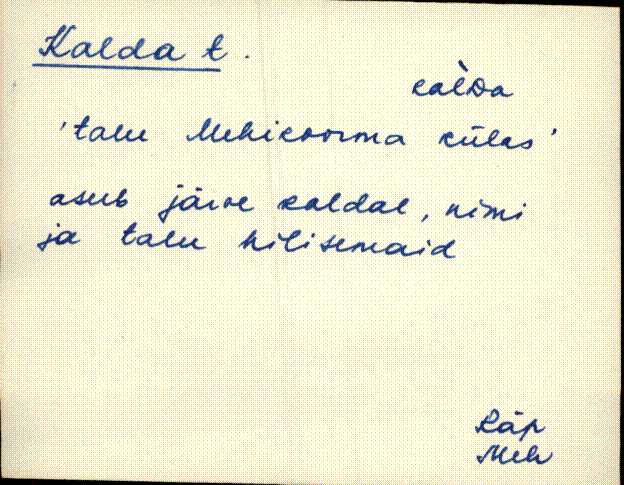 Kalda t.
kal̀Da
'talu Mehikoorma külas'
asub järve kaldal, nimi
ja talu hilisemaid
Räp
Meh